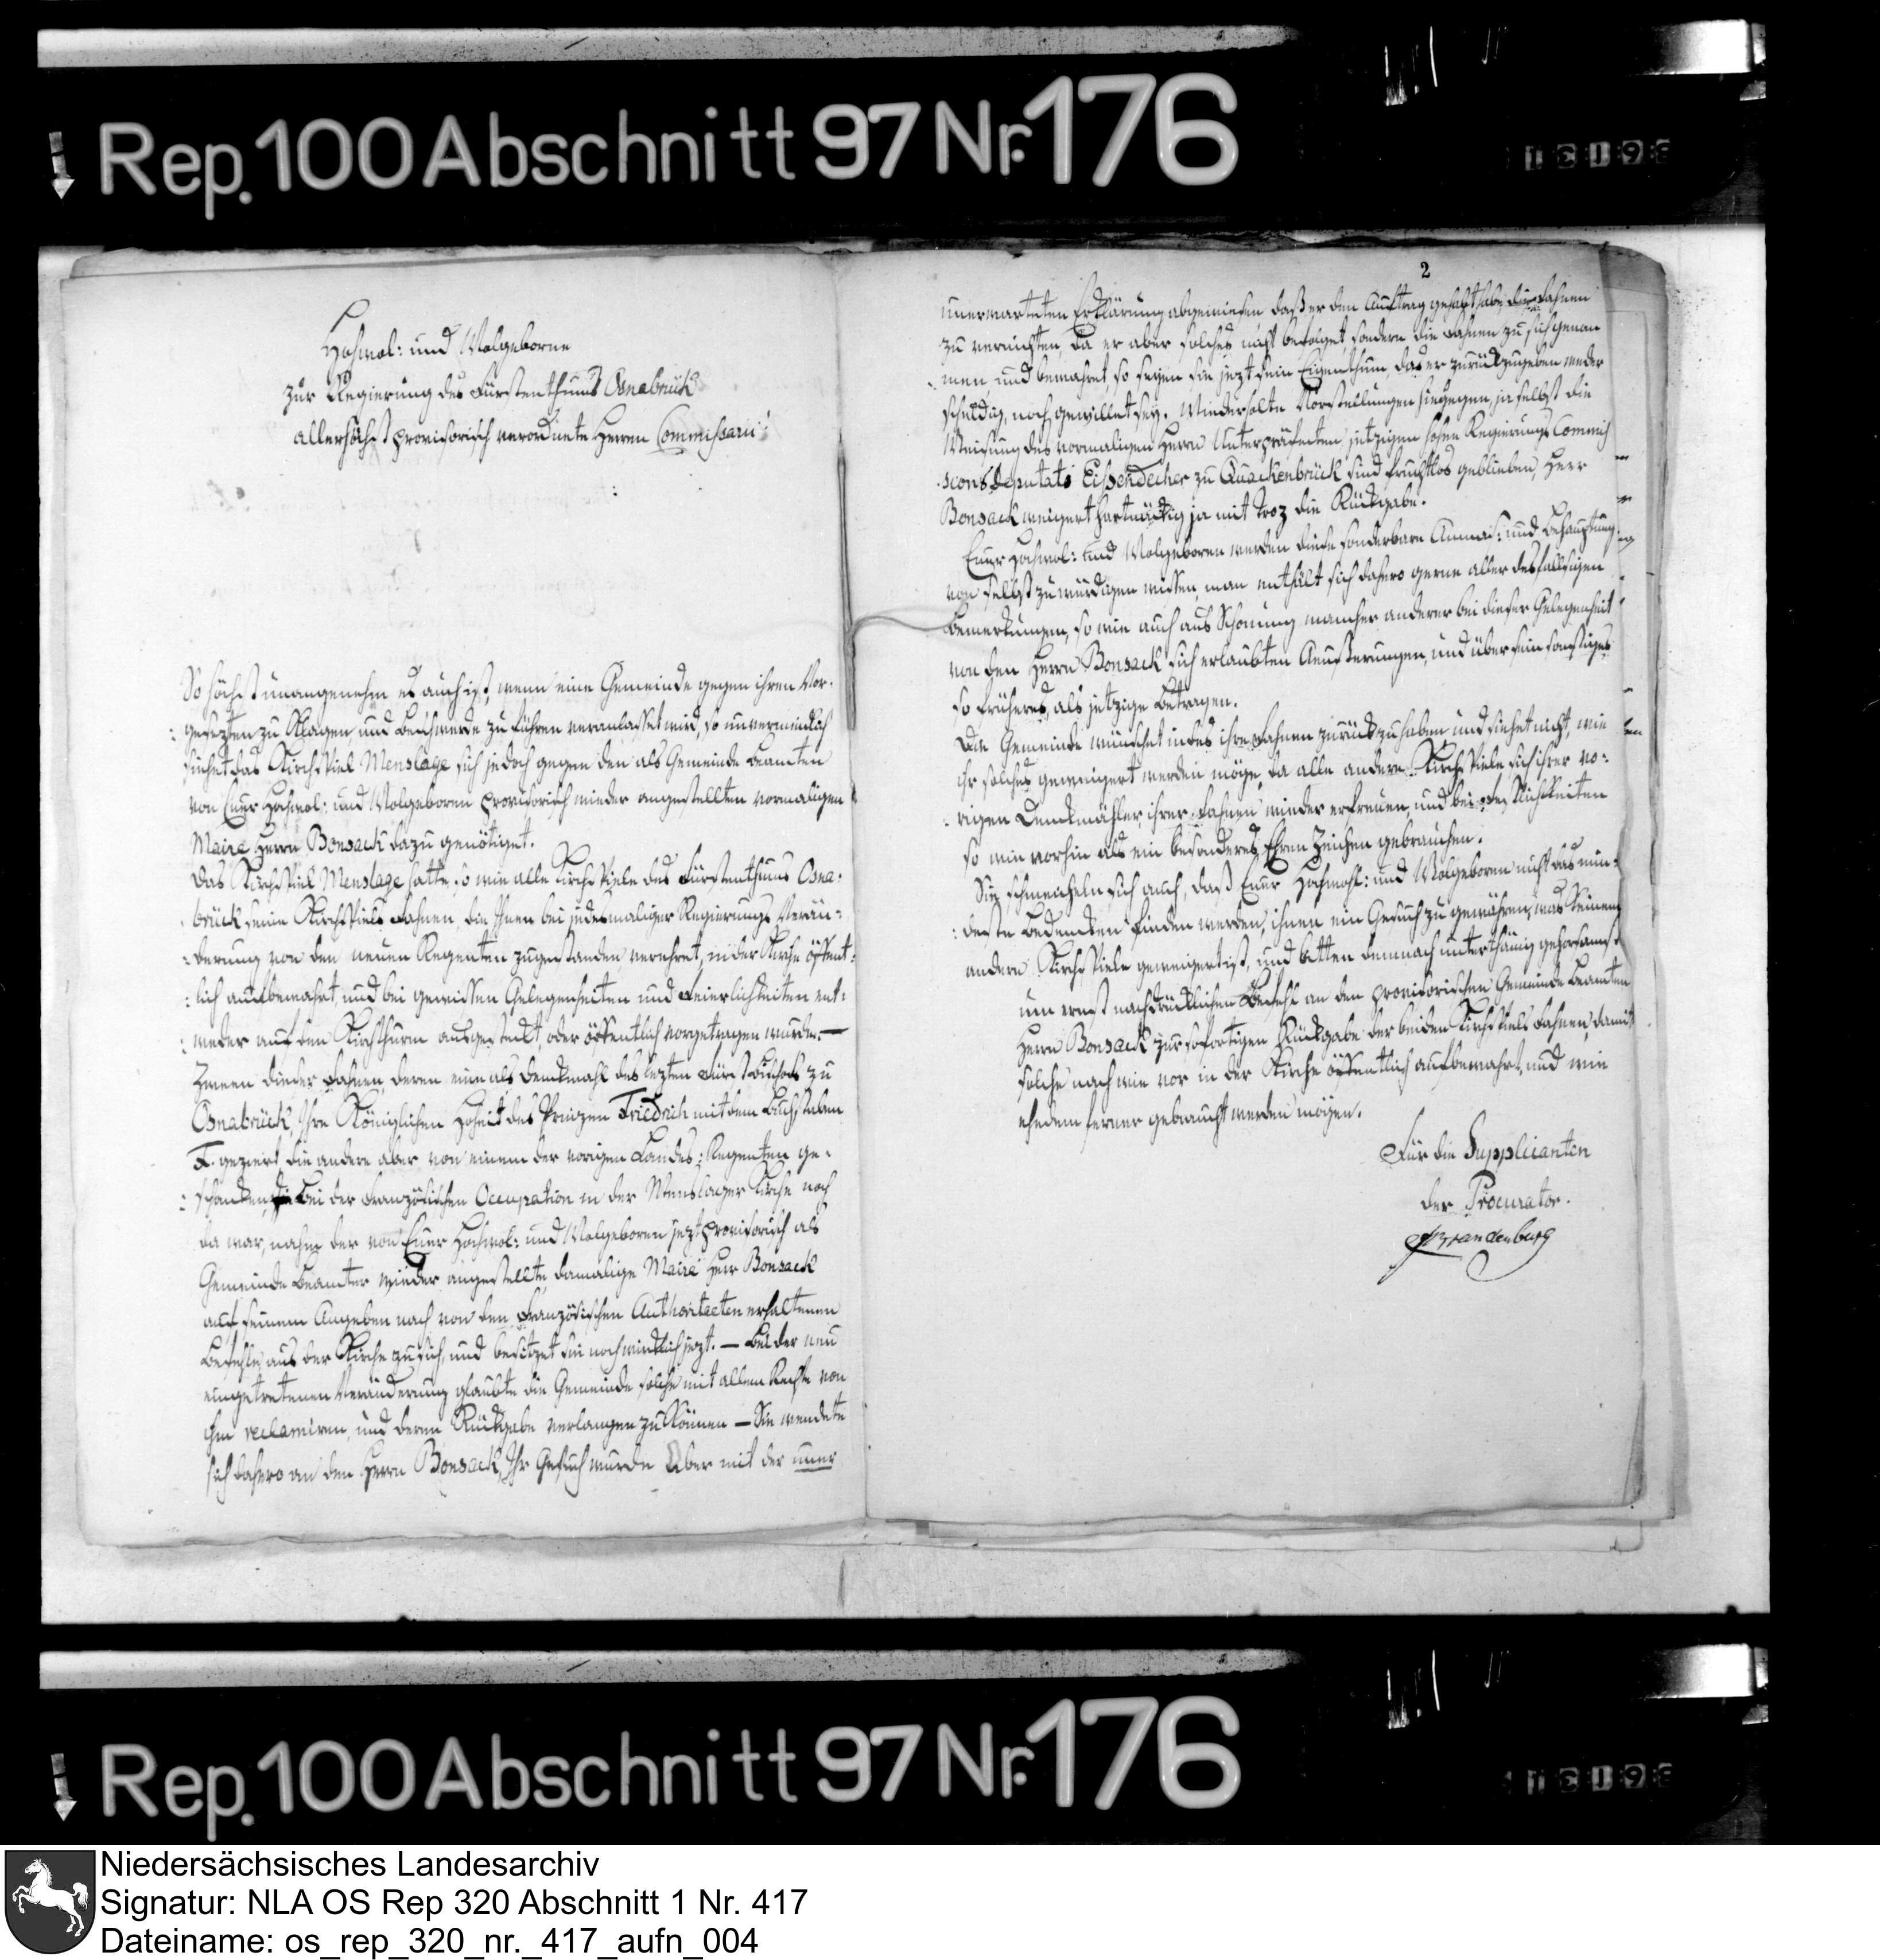 Rep. 100 Abschnitt 97 Nr. 176
Hochwol: und Wolgeborne
zur Regierung des Fürstenthums Osnabrück
allerhöchst provisorisch verordnete Herren Commissarii!
So höchst unangenehm es auch ist, wenn eine Gemeinde gegen ihren Vor-
gesezten zu Klagen und Beschwerde zu führen veranlasset wird, so unvermeidlich
siehet das Kirchspiel Menslage sich jedoch gegen den als Gemeinde Beamten
von Euer Hochwol: und Wolgeboren provisorisch wieder angestellten vormaligen
Maire Herrn Bonsack dazu genötiget.
Das Kirchspiel Menslage hatte, so wie alle Kirchspiele des Fürstenthums Osna-
brück seine Kirchspiels Fahnen, die Ihnen bei jedesmaliger Regierungs Verän-
derung von den neuen Regenten zugestanden verehret, in der Kirche öffent-
lich aufbewahrt, und bei gewissen Gelegenheiten und Feierlichkeiten ent-
weder auf den Kirchthurm ausgesteckt, oder öffentlich vorgetragen wurde. —
Zween dieser Fahnen, deren eine als Denkmahl des lezten Fürst Bischofs zu
Osnabrück, Ihre Königlichen Hoheit des Prinzen Friedrich mit dem Buchstaben
F. geziert, die andere aber von einem der vorigen Landes-Regenten ge-
schenket, bei der Französischen Occupation in der Menslager Kirche noch
da war, nahm der von Euer Hochwol: und Wolgeboren jezt provisorisch als
Gemeinde Beamter wieder angestellte, damalige Maire Herr Bonsack
auf seinem Angeben nach von den Französischen Authoriteten erhaltenen
Befehle, aus der Kirche zu sich, und besitzet sie noch wirklich jezt. — Bei der neu
eingetretenen Veränderung glaubte die Gemeinde solche mit allem Rechte von
ihm reclamiren, und deren Rückgabe verlangen zu können — Sie wendete
sich dahero an den Herrn Bonsack, Ihr Gesuch wurde aber mit der uner
2
unerwarteten Erklärung abgewiesen, daß er den Auftrag gehabt habe, die Fahnen
zu vernichten, da er aber solches nicht befolget, sondern die Fahnen zu sich genom
men und bewahret, so seyen sie jezt sein Eigenthum, das er zurückzugeben weder
schuldig, noch gewillet sey. Wiederholte Vorstellungen hiegegen, ja selbst die
Weisung des vormaligen Herrn Unterpräfecten jetzigen hohen Regierungs Commis
sions deputati Eissendecher zu Quackenbrück sind fruchtlos geblieben, Herr
Bonsack weigert hartnäckig ja mit Troz die Rückgabe.
Euer Hochwol: und Wolgeboren werden diese sonderbare Anmas- und Behauptung
von selbst zu würdigen wissen, man enthält sich dahero gerne aller desfallsigen
Bemerkungen, so wie auch aus Schonung mancher anderer bei dieser Gelegenheit
von den Herrn Bonsack sich erlaubten Aeusserungen, und über sein sonstiges
so früheres, als jetzige Betragen.
Die Gemeinde wünschet indes ihre Fahnen zurück zu haben und siehet nicht, wie
ihr solches geweigert werden möge, da alle andere Kirchspiele sich ihrer vo-
rigen Denkmähler, ihrer Fahnen wieder erfreuen, und bei
so wie vorhin als ein besonderes Ehren Zeichen gebrauchen.
Sie schmeicheln sich auch, daß Euer Hochwohl: und Wolgeboren nicht das min-
deste Bedenken finden werden, ihnen ein Gesuch zu gewähren, was keinem
andern Kirchspiele geweigert ist, und bitten demnach unterthänig gehorsamst
um ernst nachdrücklichen Befehl an den provisorischen Gemeinde Beamten
Herrn Bonsack zur sofortigen Rückgabe der beiden Kirchspiels Fahnen, damit
solche nach wie vor in der Kirche öffentlich aufbewahrt, und wie
ehedem ferner gebraucht werden mögen.
Für die Supplicanten
der Procurator.
Brandenburg
Rep. 100 Abschnitt 97 Nr. 176
Niedersächsisches Landesarchiv
Signatur: NLA OS Rep 320 Abschnitt 1 Nr. 417
Dateiname: os_rep_320_nr._417_aufn_004